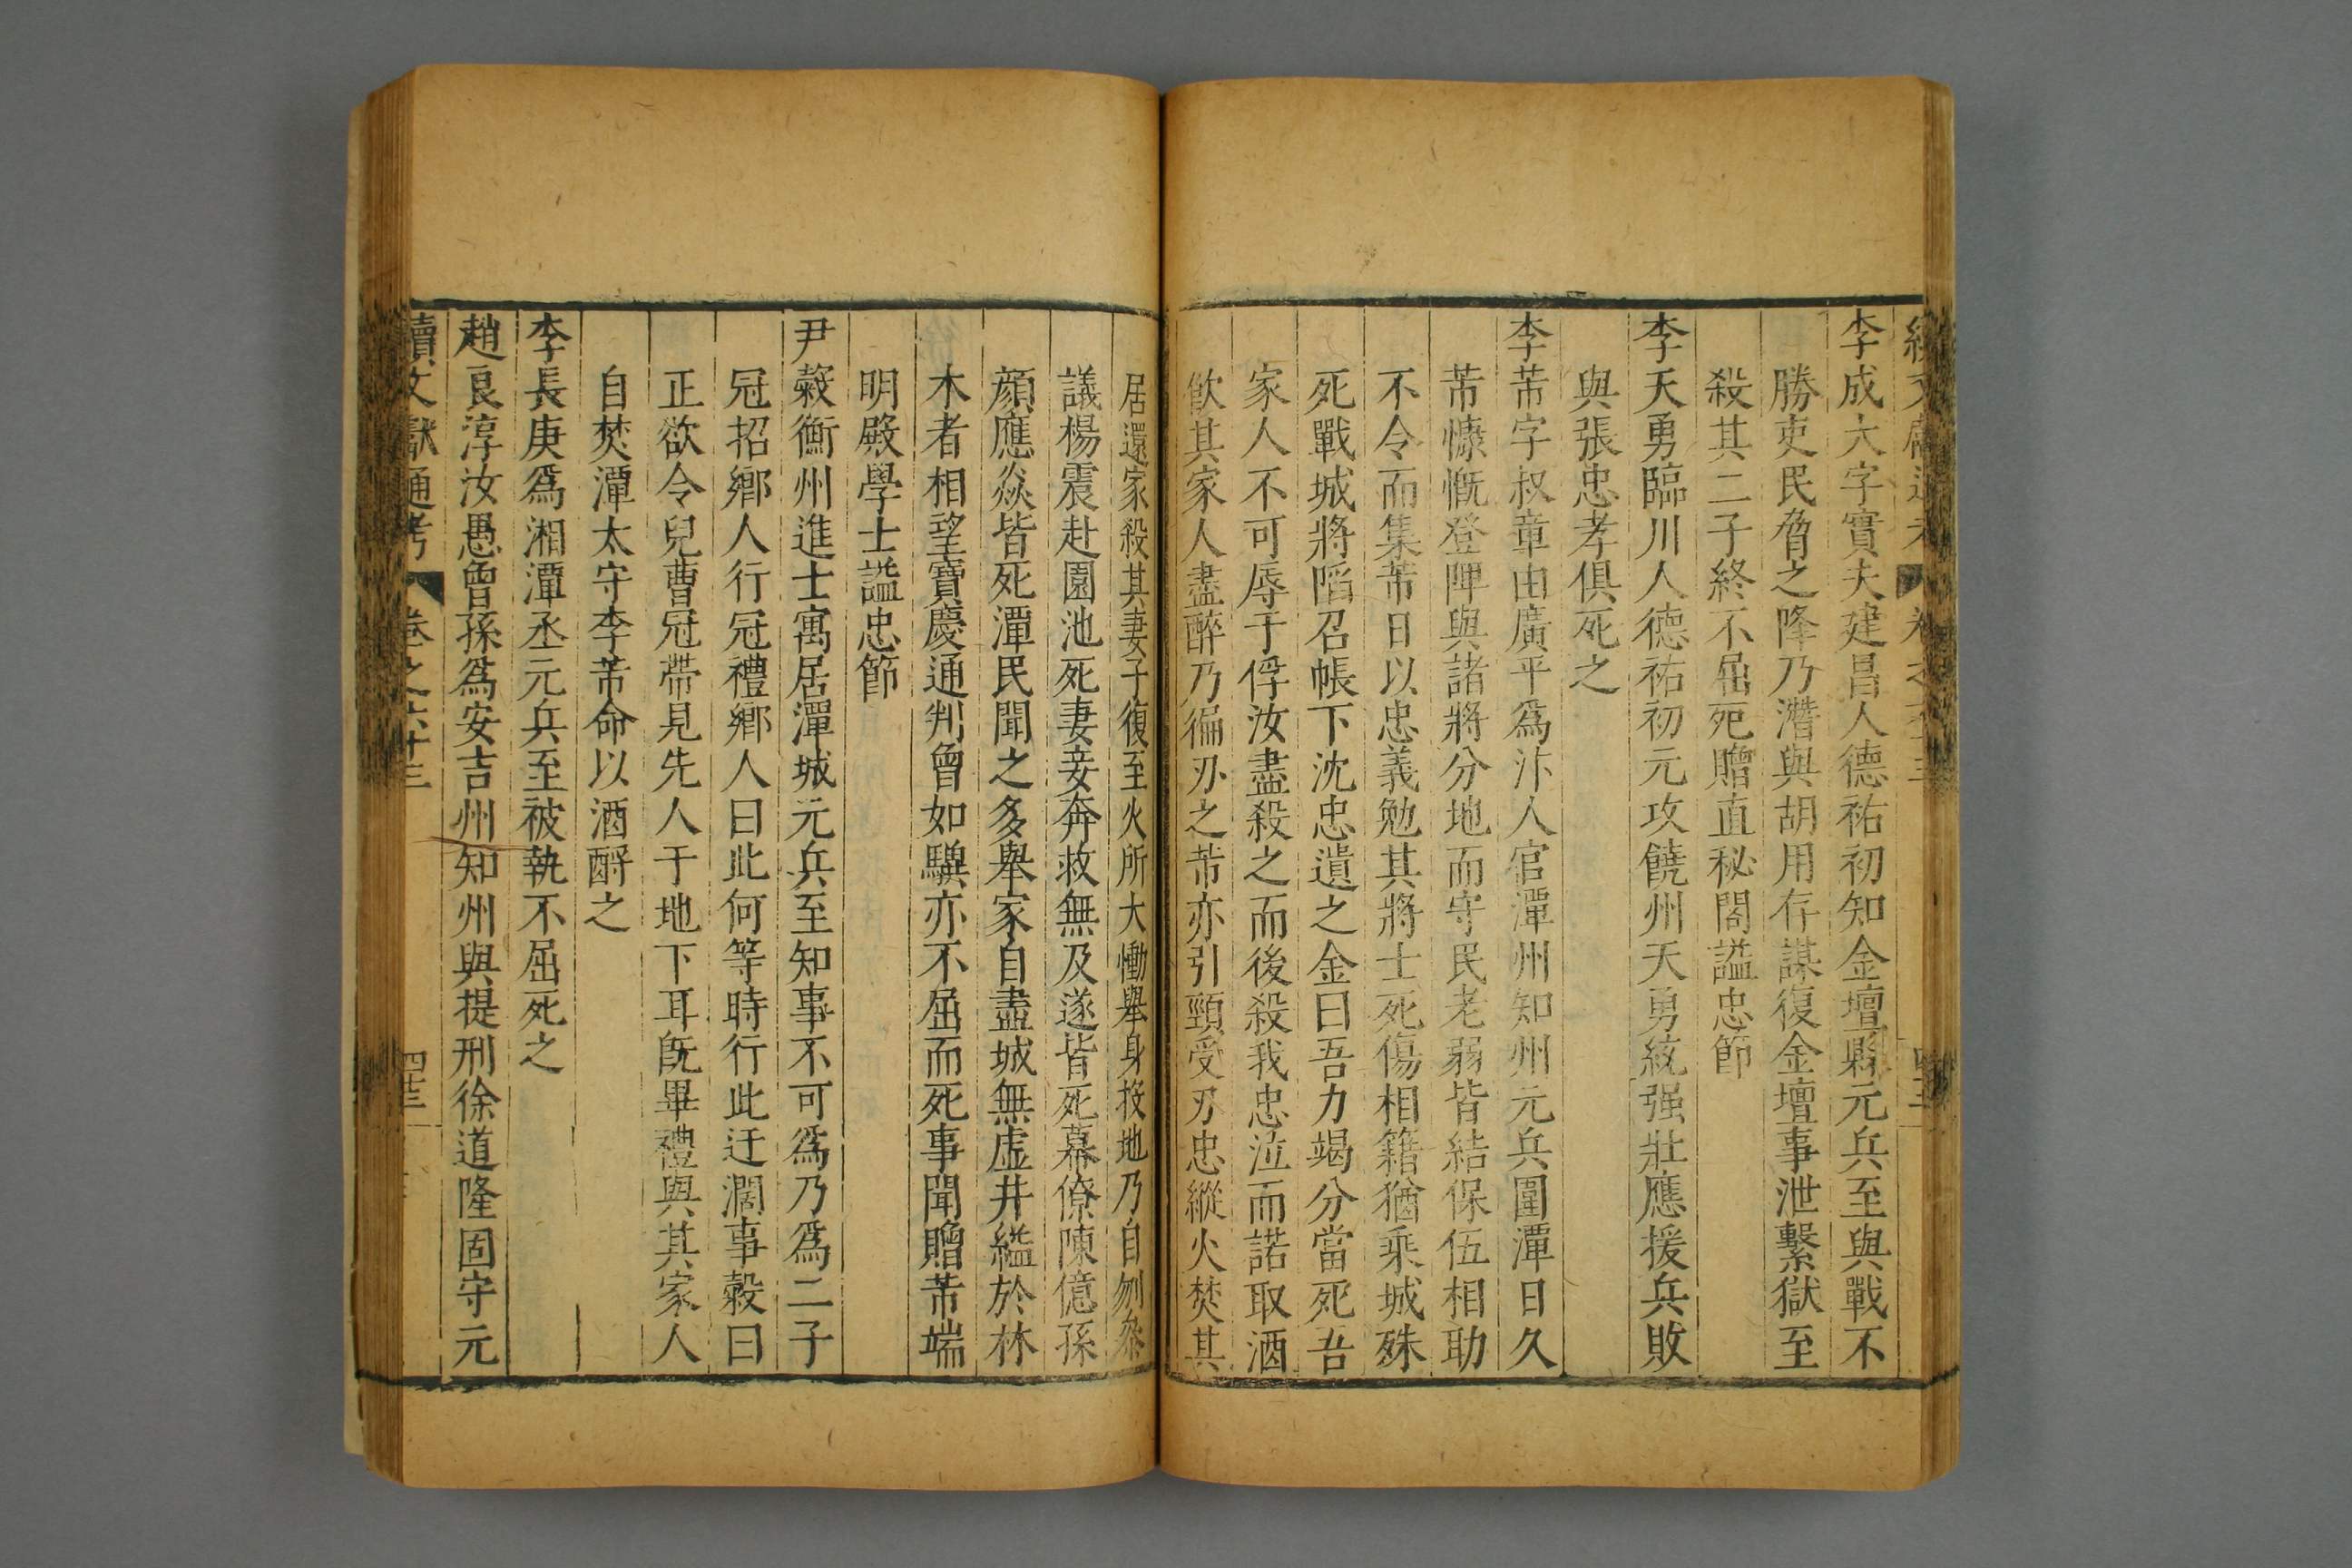 李成大字實夫建昌人德祐初知金壇縣元兵至與戰不
勝吏民脅之降乃潛與胡用存謀復金壇事泄繫獄至
殺其二子終不屈死贈直秘閣謚忠節
李天勇臨川人德祐初元攻饒州天勇統强壯應援兵敗
與張忠孝俱死之
李芾字叔章由廣平爲汴人官潭州知州元兵圍潭日久
芾慷慨登陴與諸將分地而守民老弱皆結保伍相助
不令而集芾日以忠義勉其將士死傷相籍猶乘城殊
死戰城將陷召帳下沈忠遺之金曰吾力竭分當死吾
家人不可辱于俘汝盡殺之而後殺我忠泣而諾取酒
飮其家人盡醉乃徧刃之芾亦引頸受刃忠縱火焚其
居還家殺其妻子復至火所大慟舉身投地乃自刎叅
議楊震赴園池死妻妾奔救無及遂皆死幕僚陳億孫
顔應焱皆死潭民聞之多舉家自盡城無虛井縊於林
木者相望寶慶通判曾如驥亦不屈而死事聞贈芾端
明殿學士謚忠節
尹穀衡州進士寓居潭城元兵至知事不可爲乃爲二子
冠招鄉人行冠禮鄉人曰此何等時行此迂濶事穀曰
正欲令兒曹冠帶見先人于地下耳旣畢禮與其家人
自焚潭太守李芾命以酒酹之
李長庚爲湘潭丞元兵至被執不屈死之
趙良淳汝愚曾孫爲安吉州知州與提刑徐道隆固守元
續文獻通考 卷之六十三 四十三